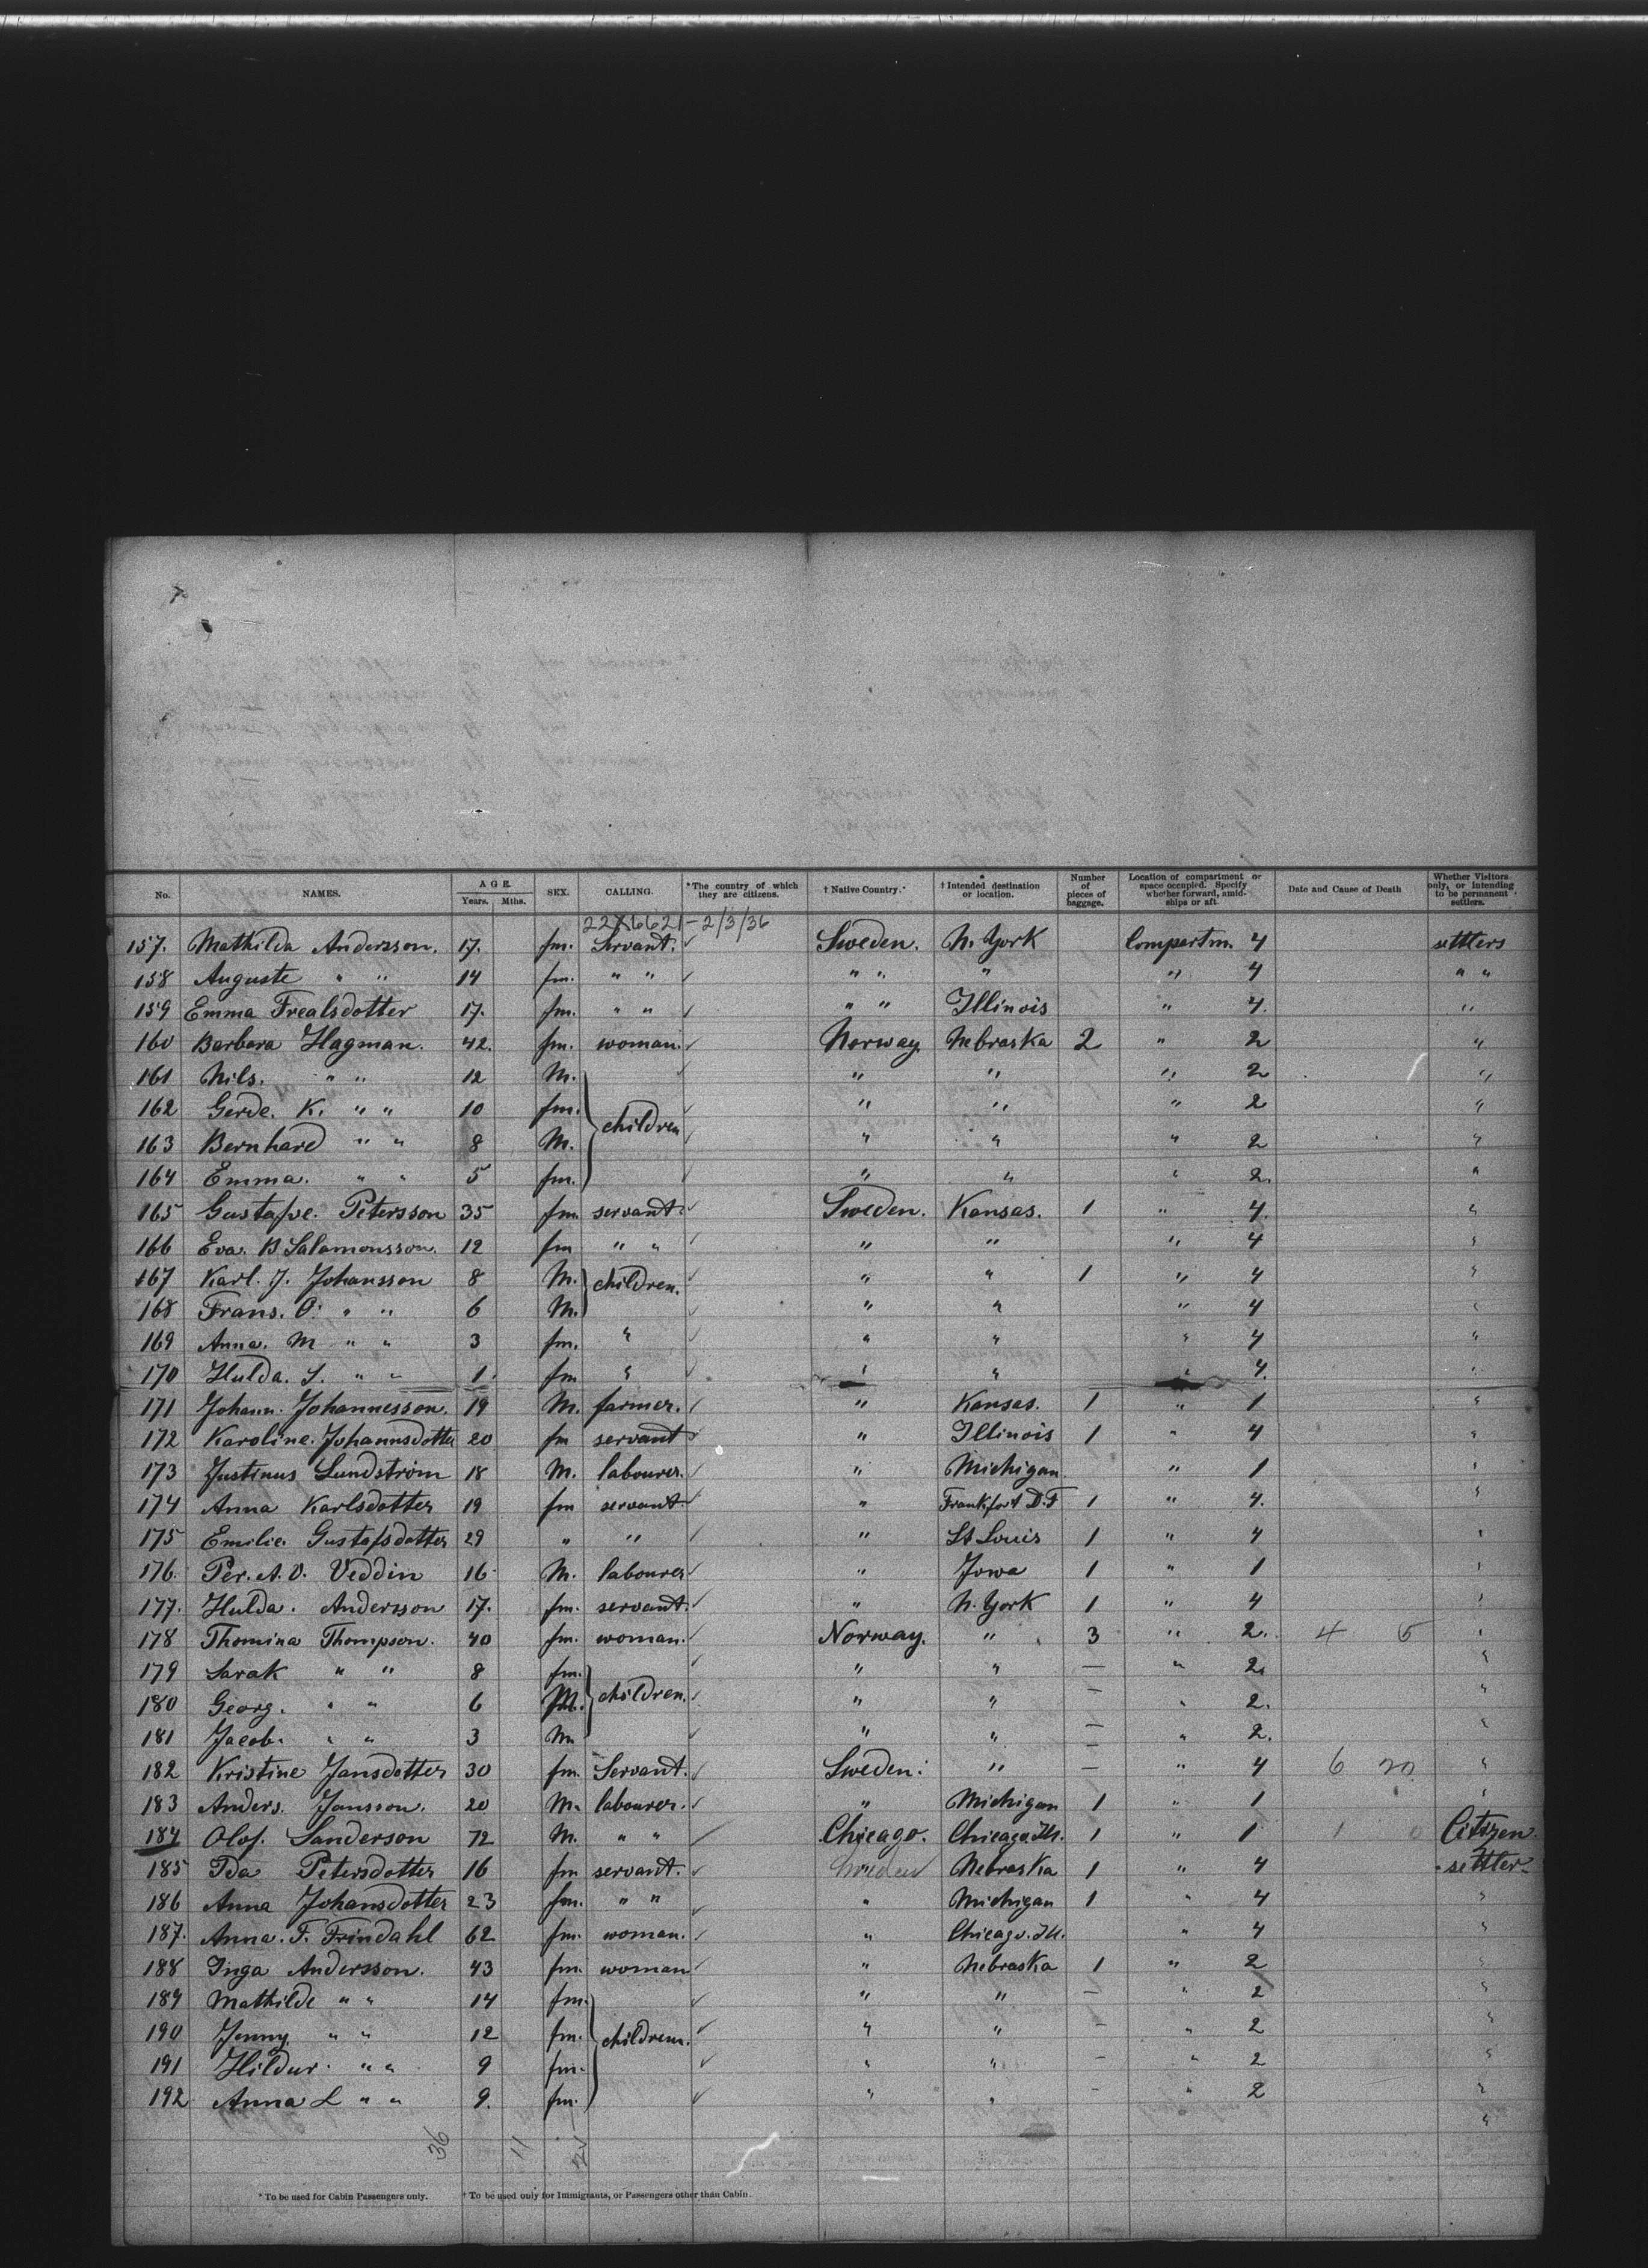 No. NAMES. AGE. Years. Mths. SEX. CALLING. *The country of which they are citizens. † Native Country. † Intended destination or location. Number of pieces of baggage. Location of compartment or space occupied. Specify whether forward, amidships or aft. Date and Cause of Death Whether Visitors only, or intending to be permanent settlers.
22X6621-2/3/36
157. Mathilda Andersson. 17. fm. Servant. ✓ Sweden. N. York Compartm. 4 settlers
158 Auguste " " 14 fm. " " ✓ " " " " 4 " "
159 Emma Frealsdotter 17. fm. " " ✓ " " Illinois " 4. "
160 Barbara Hagman. 42. fm. woman. ✓ Norway. Nebraska 2 " 2 "
161 Nils. " " 12 M. ✓ " " " 2 "
162 Gerde. K. " " 10 fm. children ✓ " " " 2 "
163 Bernhard " " 8 M. ✓ " " " 2 "
164 Emma. " " 5 fm. ✓ " " " 2. "
165 Gustafve. Petersson 35 fm. servant. ✓ Sweden. Kansas. 1 " 4. "
166 Eva. B Salamonsson. 12 fm " " ✓ " " " 4 "
167 Karl. J. Johansson 8 M. children. ✓ " " 1 " 4 "
168 Frans. O. " " 6 M. ✓ " " " 4 "
169 Anna. M " " 3 fm. " ✓ " " " 4 "
170 Hulda. S. " " 1. fm " ✓ " " " 4. "
171 Johann. Johannesson. 19 M. farmer. ✓ " Kansas. 1 " 1 "
172 Karoline. Johannsdotter 20 fm servant ✓ " Illinois 1 " 4 "
173 Justinus Lundström 18 M. labourer. ✓ " Michigan " 1 "
174 Anna Karlsdotter 19 fm servant ✓ " Frankfort D.F 1 " 4. "
175 Emilie. Gustafsdotter 29 " " ✓ " St Louis 1 " 4 "
176. Per. A. V. Veddin 16 M. labourer ✓ " Jowa 1 " 1 "
177. Hulda. Andersson 17. fm. servant. ✓ " N. York 1 " 4 "
178 Thomina Thompson. 40 fm. woman. ✓ Norway. " 3 " 2. 4 5 "
179 Sarak " " 8 fm. ✓ " " — " 2. "
180 Georg. " " 6 M. children. ✓ " " — " 2. "
181 Jacob. " " 3 M ✓ " " — " 2. "
182 Kristine Jansdotter 30 fm. Servant. ✓ Sweden. " — " 4 6 20 "
183 Anders. Jansson. 20 M. labourer. ✓ " Michigan 1 " 1 "
184 Olof. Sanderson 72 M. " " ✓ Chicago. Chicago Ill. 1 " 1 1 0 Citizen.
185 Ida Petersdotter 16 fm servant. ✓ Sweden Nebraska 1 " 4 settler
186 Anna Johansdotter 23 fm. " " ✓ " Michigan 1 " 4 "
187. Anna. F. Frindahl 62 fm. woman. ✓ " Chicago. Ill. " 4 "
188 Inga Andersson. 43 fm. woman ✓ " Nebraska 1 " 2 "
189 Mathilde " " 14 fm. ✓ " " — " 2 "
190 Jenny. " " 12 fm. children. ✓ " " — " 2 "
191 Hildur. " " 9 fm. ✓ " " — " 2 "
192 Anna L " " 9. fm. ✓ " " — " 2 "
36 11
* To be used for Cabin Passengers only. † To be used only for Immigrants, or Passengers other than Cabin.